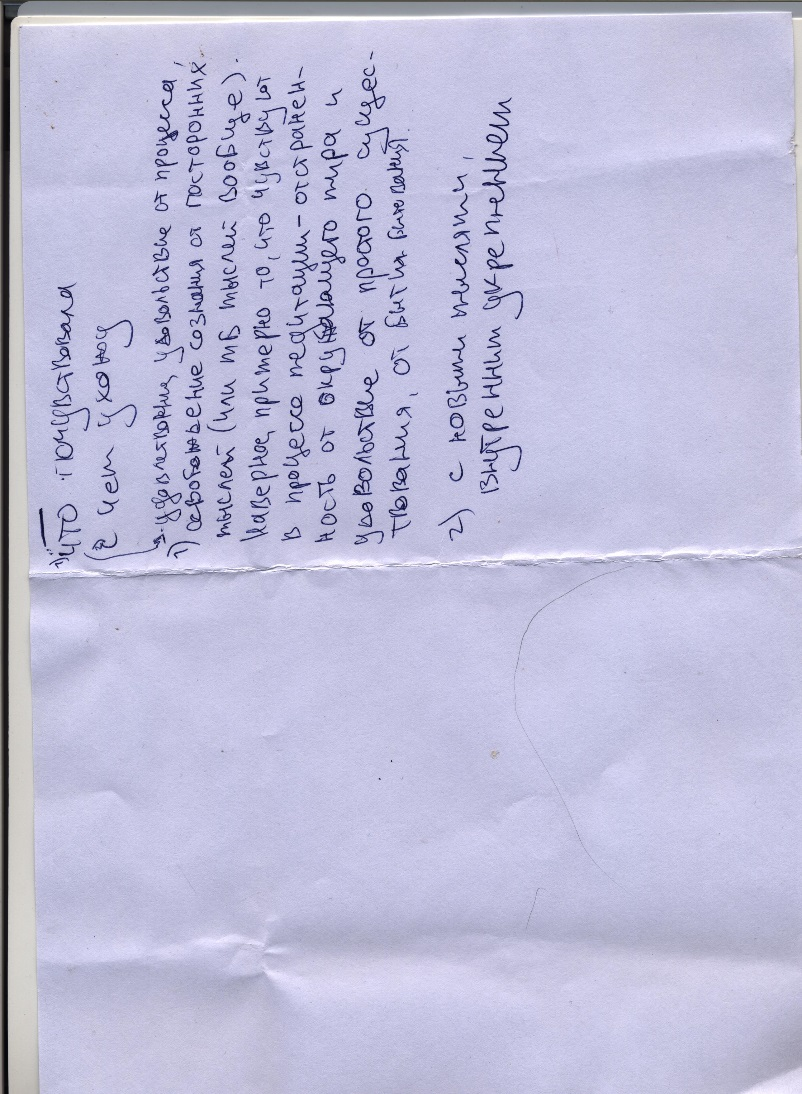 1) что почувствовала
с чем ухожу
удовлетворение, удовольствие от процесса,
1) освобождение сознания от посторонних
мыслей (или мб мыслей вообще).
Наверное, примерно то, что чувствуют
в процессе медитации – отстранен-
ность от окружающего мира и
удовольствие от простого сущес-
твования, от бытия бытования.
2) с новыми мыслями,
внутренним укреплением